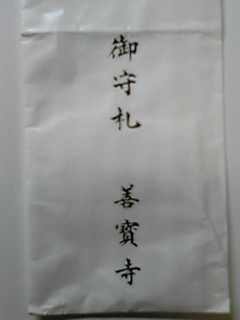 御守札　善寳寺